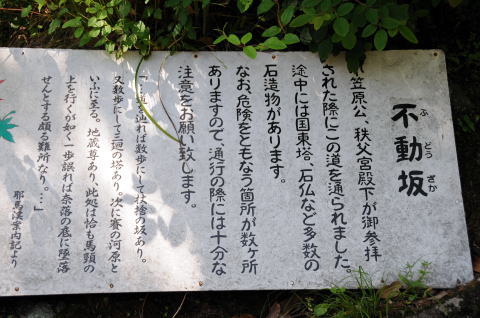 不動坂
ふどうざか
笠原公、秩父宮殿下が御参拝
された際にこの道を通られました。
途中には国東塔、石仏など多数の
石造物があります。
なお、危険をともなう箇所が数ヶ所
ありますので、通行の際には十分な
注意をお願い致します。
辿れば数歩にして杖捨の坂あり。
又数歩にして三廻の塔あり。次に賽の河原と
いふに至る。地蔵尊あり。此処は恰も馬頭の
上を行くが如く一歩誤れば奈落の底に墜落
せんとする頗る難所なり。…」
耶馬渓案内記より